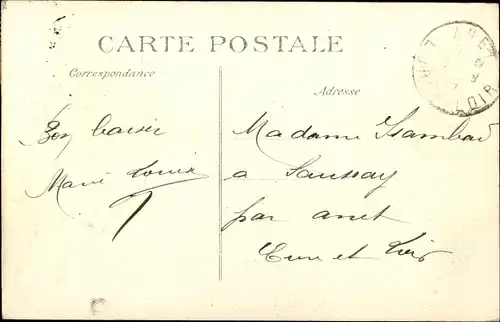 CARTE POSTALE
Correspondance
Adresse
Bon baiser
Marie Louise
Madame Isambard
a Saussay
par anet
Eure et Loir
LOIR